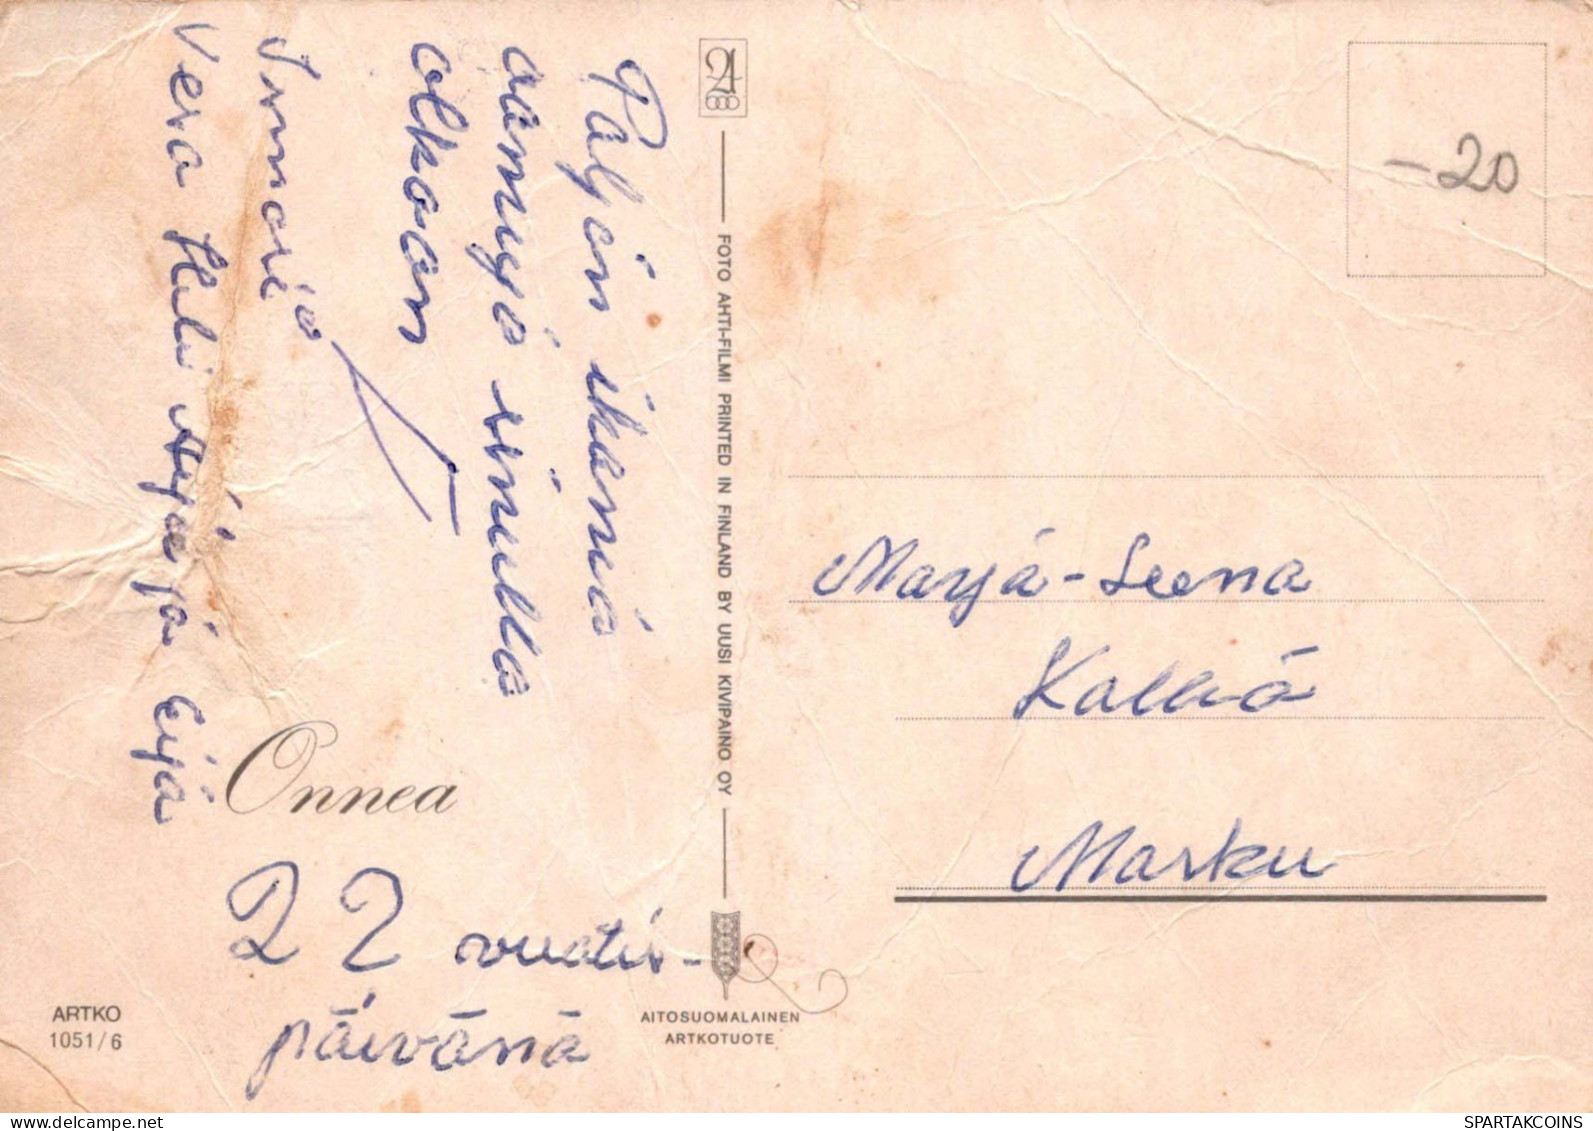 Paljon ihania
aamuja sinulla
olkoon
Irmari ja
Vesa Heli Arja ja Eija
Onnea
22 vuotis-
päivänä
ARTKO
1051/6
FOTO AHTI-FILMI PRINTED IN FINLAND BY UUSI KIVIPAINO OY
AITOSUOMALAINEN
ARTKOTUOTE
-20
Marja-Leena
Kallio
Marku
SPARTAKCOINS